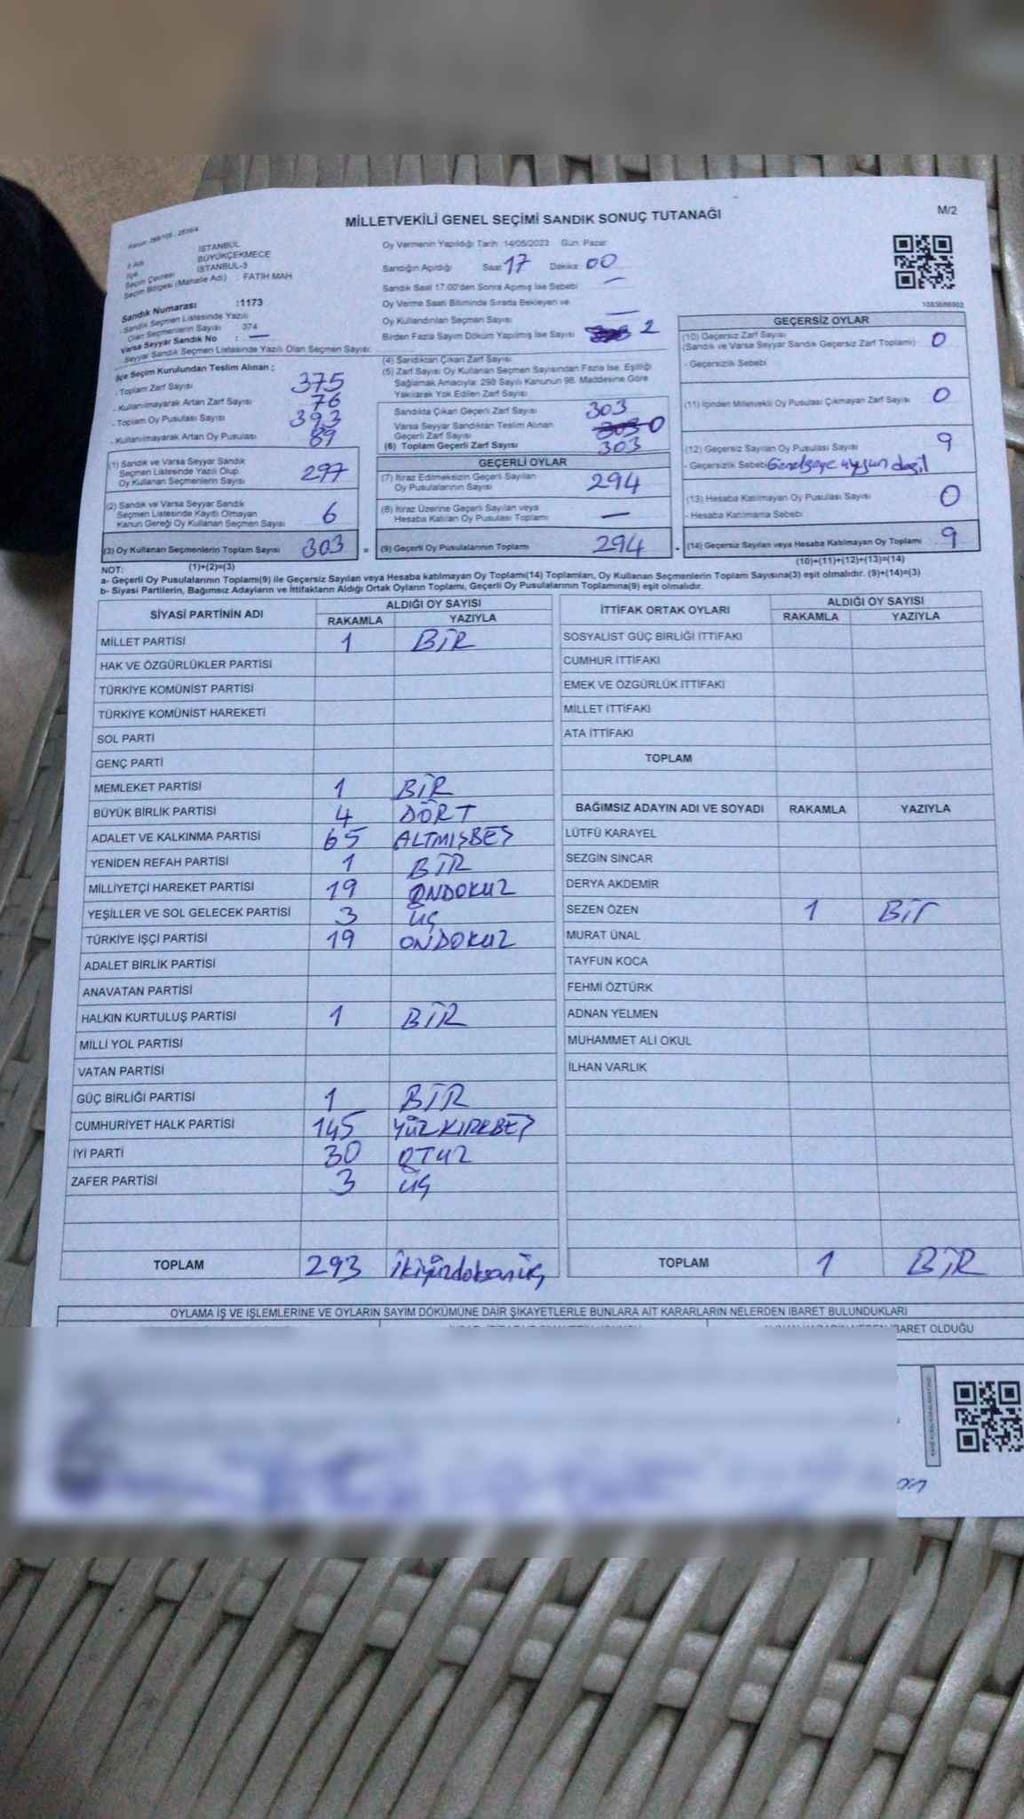 MİLLETVEKİLİ GENEL SEÇİMİ SANDIK SONUÇ TUTANAĞI
M/2
İSTANBUL
BÜYÜKÇEKMECE
İSTANBUL-3
Seçim Bölgesi (Mahalle Adı) : FATİH MAH
Sandık Numarası :1173
Sandık Seçmen Listesinde Yazılı
Olan Seçmenlerin Sayısı 374
Varsa Seyyar Sandık No : —
Seyyar Sandık Seçmen Listesinde Yazılı Olan Seçmen Sayısı:
İlçe Seçim Kurulundan Teslim Alınan ;
- Toplam Zarf Sayısı 375
- Kullanılmayarak Artan Zarf Sayısı 76
- Toplam Oy Pusulası Sayısı 393
- Kullanılmayarak Artan Oy Pusulası 89
(1) Sandık ve Varsa Seyyar Sandık
Seçmen Listesinde Yazılı Olup
Oy Kullanan Seçmenlerin Sayısı 297
(2) Sandık ve Varsa Seyyar Sandık
Seçmen Listesinde Kayıtlı Olmayan
Kanun Gereği Oy Kullanan Seçmen Sayısı 6
(3) Oy Kullanan Seçmenlerin Toplam Sayısı 303
(1)+(2)=(3)
Oy Vermenin Yapıldığı Tarih 14/05/2023 Gün Pazar
Sandığın Açıldığı Saat 17 Dakika 00
Sandık Saat 17:00'den Sonra Açılmış İse Sebebi —
Oy Verme Saati Bitiminde Sırada Bekleyen ve
Oy Kullandırılan Seçmen Sayısı —
Birden Fazla Sayım Döküm Yapılmış İse Sayısı 2
(4) Sandıktan Çıkan Zarf Sayısı
(5) Zarf Sayısı Oy Kullanan Seçmen Sayısından Fazla İse, Eşitliği
Sağlamak Amacıyla; 298 Sayılı Kanunun 98. Maddesine Göre
Yakılarak Yok Edilen Zarf Sayısı
Sandıkta Çıkan Geçerli Zarf Sayısı 303
Varsa Seyyar Sandıktan Teslim Alınan
Geçerli Zarf Sayısı 0
(6) Toplam Geçerli Zarf Sayısı 303
GEÇERLİ OYLAR
(7) İtiraz Edilmeksizin Geçerli Sayılan
Oy Pusulalarının Sayısı 294
(8) İtiraz Üzerine Geçerli Sayılan veya
Hesaba Katılan Oy Pusulası Toplamı —
= (9) Geçerli Oy Pusulalarının Toplamı 294
GEÇERSİZ OYLAR
(10) Geçersiz Zarf Sayısı 0
(Sandık ve Varsa Seyyar Sandık Geçersiz Zarf Toplamı)
- Geçersizlik Sebebi
(11) İçinden Milletvekili Oy Pusulası Çıkmayan Zarf Sayısı 0
(12) Geçersiz Sayılan Oy Pusulası Sayısı 9
- Geçersizlik Sebebi Genelgeye uygun değil
(13) Hesaba Katılmayan Oy Pusulası Sayısı 0
- Hesaba Katılmama Sebebi
(14) Geçersiz Sayılan veya Hesaba Katılmayan Oy Toplamı 9
(10)+(11)+(12)+(13)=(14)
NOT:
a- Geçerli Oy Pusulalarının Toplamı(9) ile Geçersiz Sayılan veya Hesaba katılmayan Oy Toplamı(14) Toplamları, Oy Kullanan Seçmenlerin Toplam Sayısına(3) eşit olmalıdır. (9)+(14)=(3)
b- Siyasi Partilerin, Bağımsız Adayların ve İttifakların Aldığı Ortak Oyların Toplamı, Geçerli Oy Pusulalarının Toplamına(9) eşit olmalıdır.
SİYASİ PARTİNİN ADI ALDIĞI OY SAYISI
RAKAMLA YAZIYLA
MİLLET PARTİSİ 1 BİR
HAK VE ÖZGÜRLÜKLER PARTİSİ
TÜRKİYE KOMÜNİST PARTİSİ
TÜRKİYE KOMÜNİST HAREKETİ
SOL PARTİ
GENÇ PARTİ
MEMLEKET PARTİSİ 1 BİR
BÜYÜK BİRLİK PARTİSİ 4 DÖRT
ADALET VE KALKINMA PARTİSİ 65 ALTMIŞBEŞ
YENİDEN REFAH PARTİSİ 1 BİR
MİLLİYETÇİ HAREKET PARTİSİ 19 ONDOKUZ
YEŞİLLER VE SOL GELECEK PARTİSİ 3 ÜÇ
TÜRKİYE İŞÇİ PARTİSİ 19 ONDOKUZ
ADALET BİRLİK PARTİSİ
ANAVATAN PARTİSİ
HALKIN KURTULUŞ PARTİSİ 1 BİR
MİLLİ YOL PARTİSİ
VATAN PARTİSİ
GÜÇ BİRLİĞİ PARTİSİ 1 BİR
CUMHURİYET HALK PARTİSİ 145 YÜZKIRKBEŞ
İYİ PARTİ 30 OTUZ
ZAFER PARTİSİ 3 ÜÇ
TOPLAM 293 ikiyüzdoksanüç
İTTİFAK ORTAK OYLARI ALDIĞI OY SAYISI
RAKAMLA YAZIYLA
SOSYALİST GÜÇ BİRLİĞİ İTTİFAKI
CUMHUR İTTİFAKI
EMEK VE ÖZGÜRLÜK İTTİFAKI
MİLLET İTTİFAKI
ATA İTTİFAKI
TOPLAM
BAĞIMSIZ ADAYIN ADI VE SOYADI RAKAMLA YAZIYLA
LÜTFÜ KARAYEL
SEZGİN SİNCAR
DERYA AKDEMİR
SEZEN ÖZEN 1 BİR
MURAT ÜNAL
TAYFUN KOCA
FEHMİ ÖZTÜRK
ADNAN YELMEN
MUHAMMET ALİ OKUL
İLHAN VARLIK
TOPLAM 1 BİR
OYLAMA İŞ VE İŞLEMLERİNE VE OYLARIN SAYIM DÖKÜMÜNE DAİR ŞİKAYETLERLE BUNLARA AİT KARARLARIN NELERDEN İBARET BULUNDUKLARI
İBARET OLDUĞU